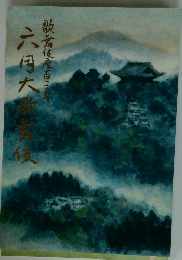 歌舞伎座百二年
六月大歌舞伎